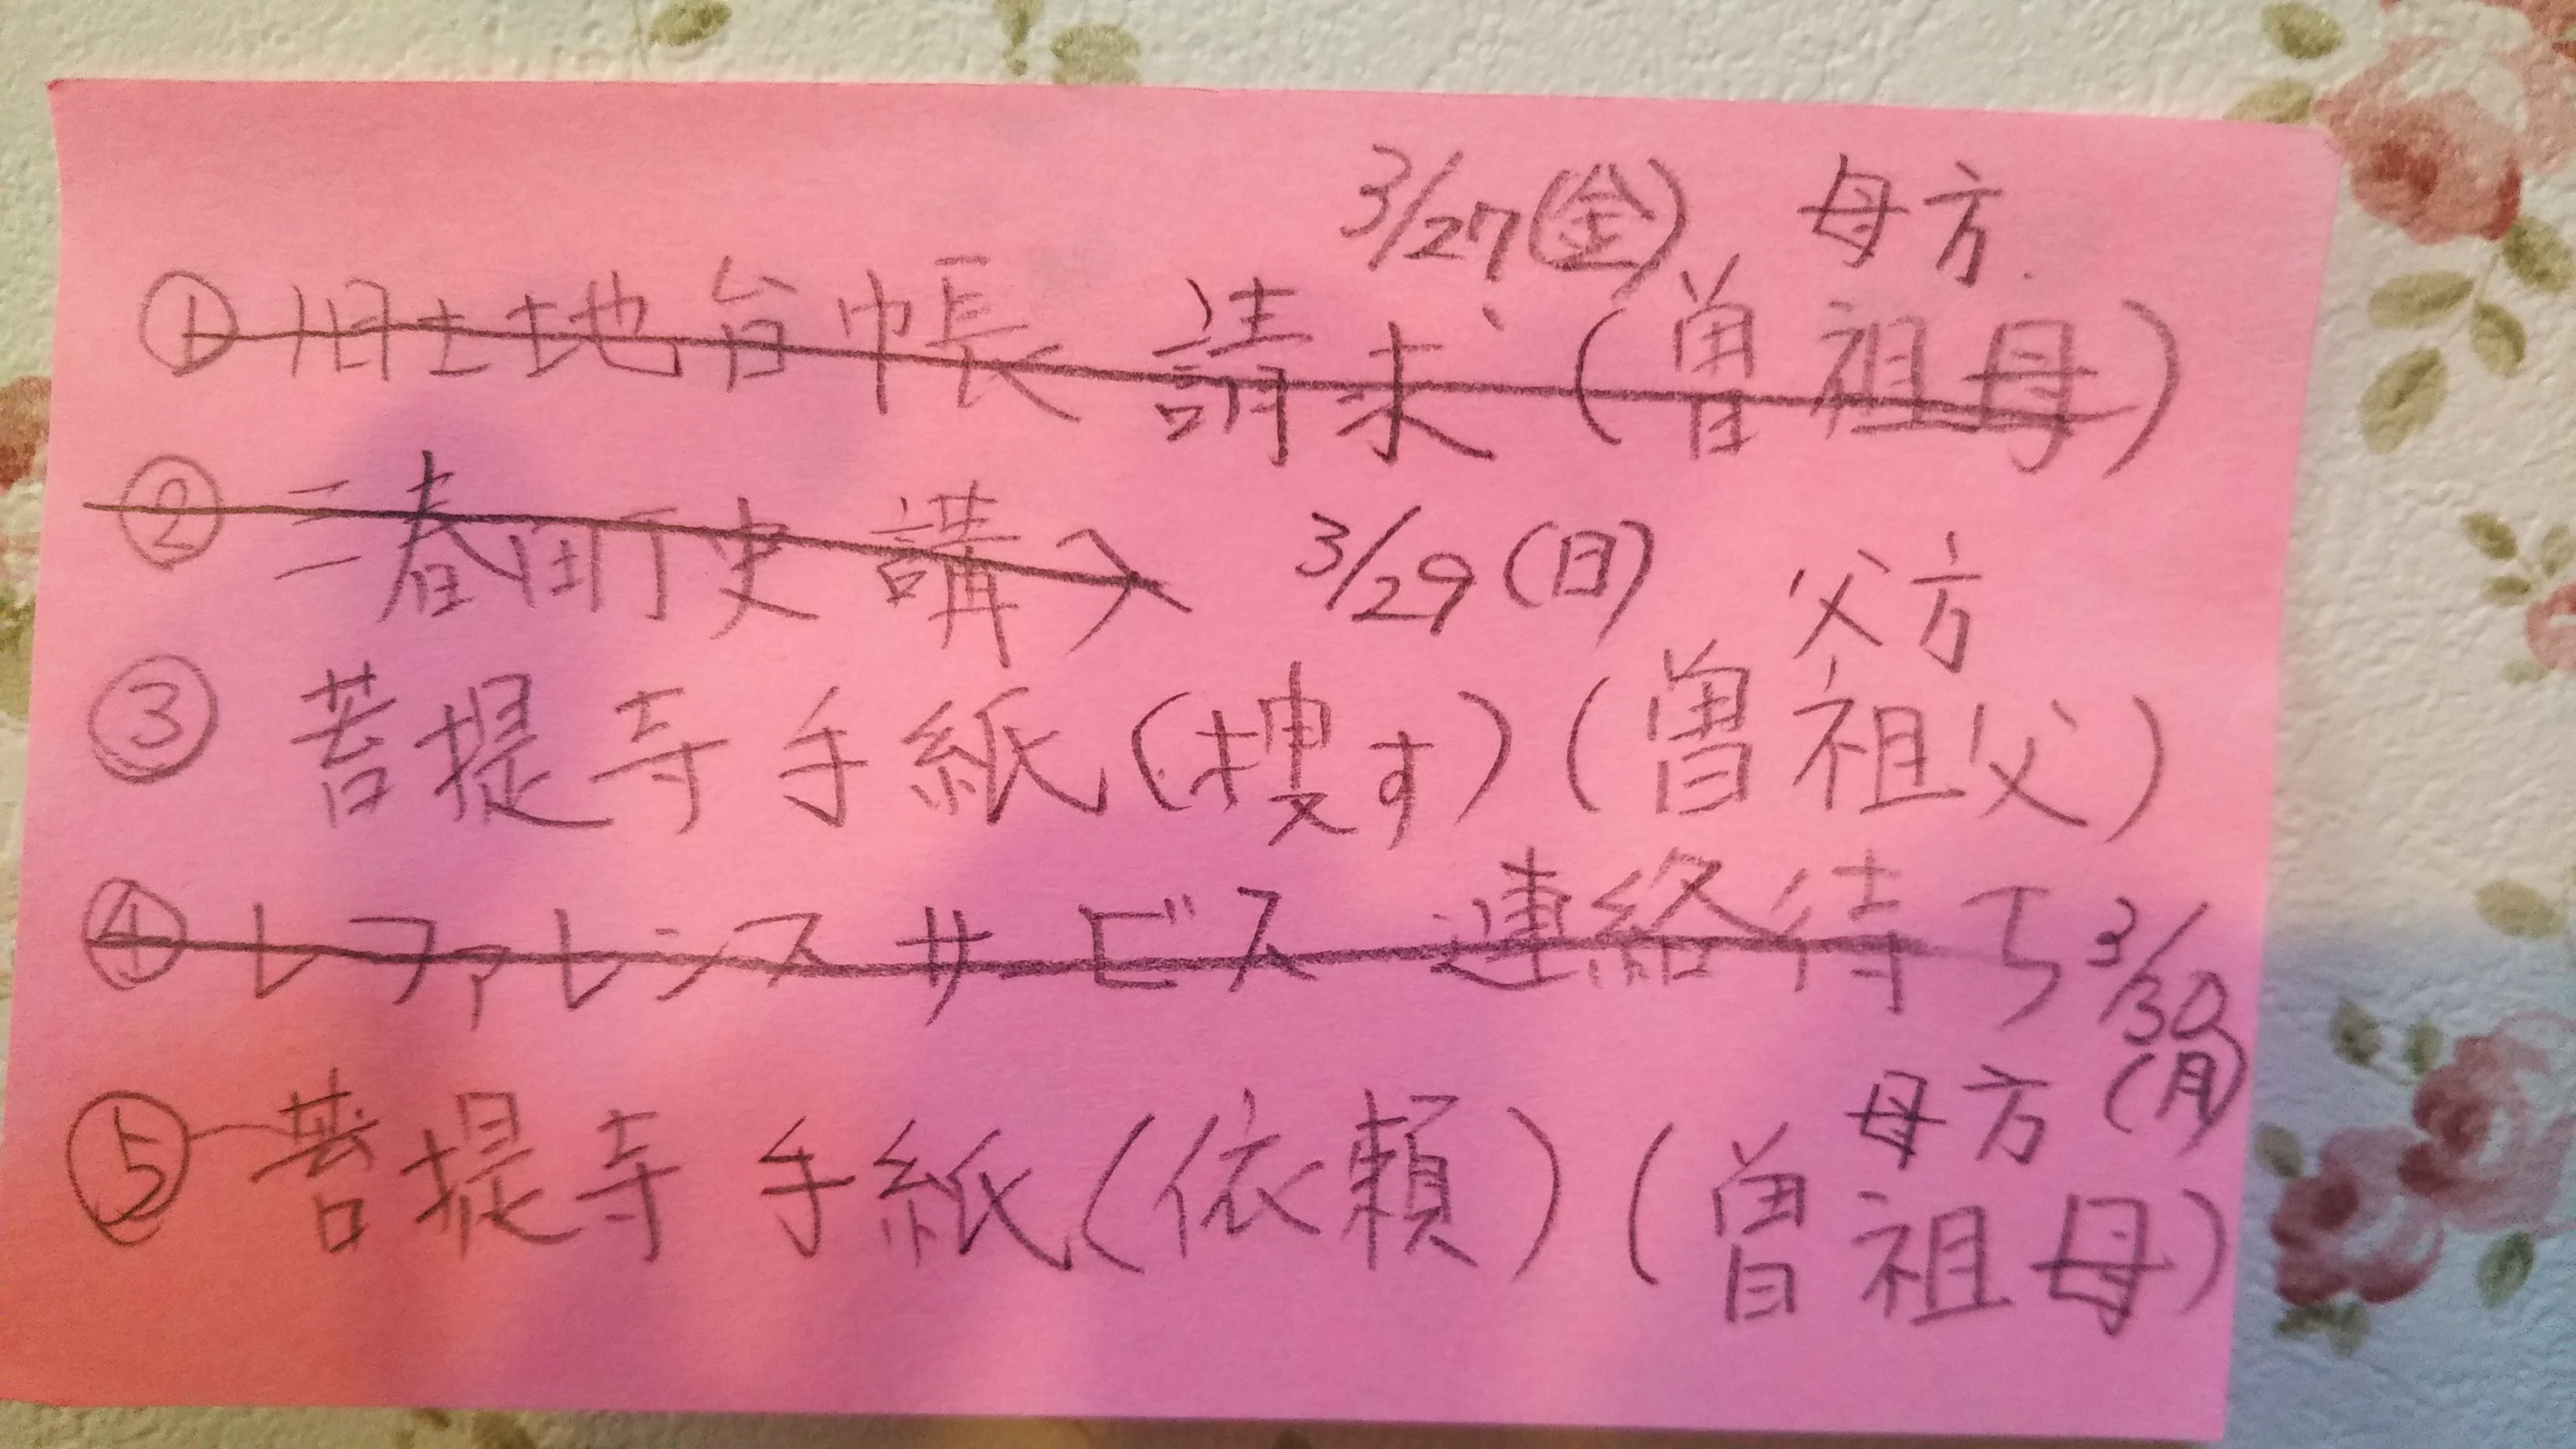 3/27(金) 母方
① 旧土地台帳 請求 (曽祖母)
② 三春町史 購入 3/29(日)
父方
③ 菩提寺 手紙 (捜す) (曽祖父)
④ レファレンスサービス 連絡待ち 3/30(月)
母方
⑤ 菩提寺 手紙 (依頼) (曽祖母)